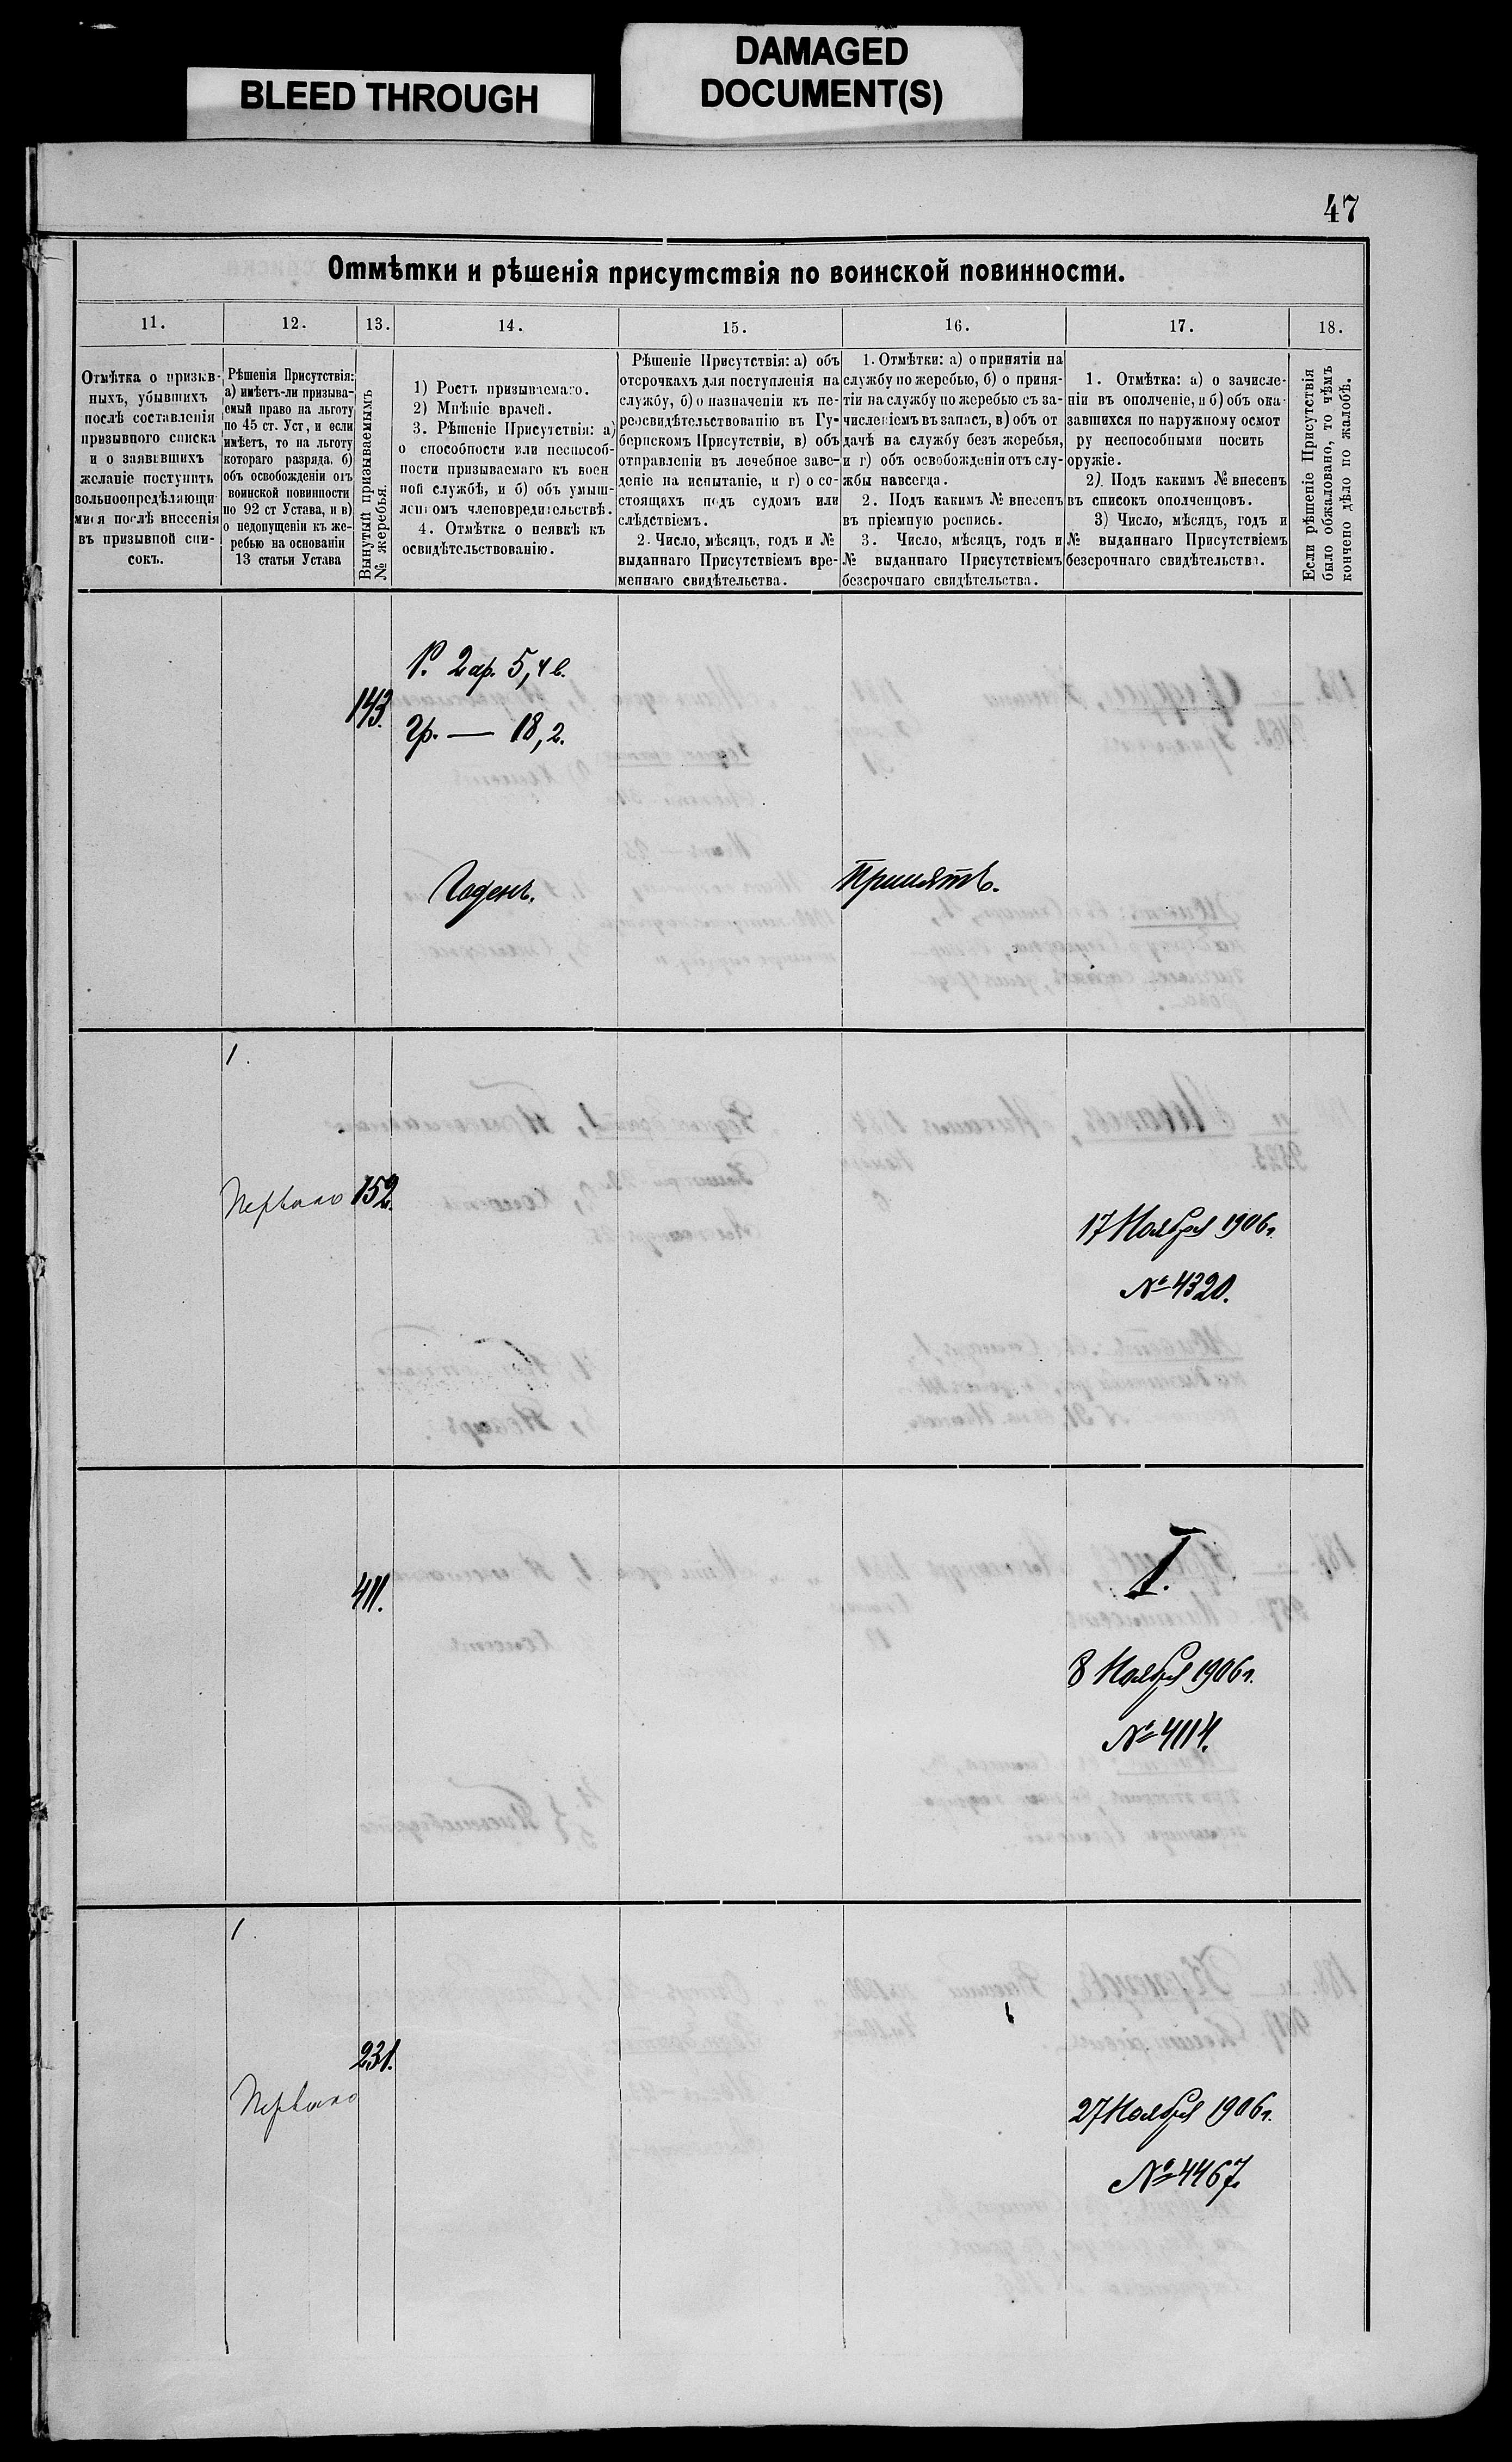 BLEED THROUGH
DAMAGED
DOCUMENT(S)
47
Отмѣтки и рѣшенія присутствія по воинской повинности.
11.
12.
13.
14.
15.
16.
17.
18.
Отмѣтка о призыв-
ныхъ, убывшихъ
послѣ составленія
призывного списка
и о заявившихъ
желаніе поступить
вольноопредѣляющи
мися послѣ внесенія
въ призывной спи-
сокъ.
Рѣшенія Присутствія:
а) имѣетъ-ли призыва-
емый право на льготу
по 45 ст. Уст, и если
имѣетъ, то на льготу
котораго разряда. б)
объ освобожденіи отъ
воинской повинности
по 92 ст Устава, и в)
о недопущеніи къ же-
ребью на основаніи
13 статьи Устава
Вынутый призываемымъ
№ жеребья.
1) Ростъ призываемаго.
2) Мнѣніе врачей.
3. Рѣшеніе Присутствія: а)
о способности или неспособ-
ности призываемаго къ воен
ной службѣ, и б) объ умыш-
ленномъ членовредительствѣ.
4. Отмѣтка о неявкѣ къ
освидѣтельствованію.
Рѣшеніе Присутствія: а) объ
отсрочкахъ для поступленія на
службу, б) о назначеніи къ пе-
реосвидѣтельствованію въ Гу-
бернскомъ Присутствіи, в) объ
отправленіи въ лечебное заве-
деніе на испытаніе, и г) о со-
стоящихъ подъ судомъ или
слѣдствіемъ.
2. Число, мѣсяцъ, годъ и №
выданнаго Присутствіемъ вре-
меннаго свидѣтельства.
1. Отмѣтки: а) о принятіи на
службу по жеребью, б) о приня-
тіи на службу по жеребью съ за-
численіемъ въ запасъ, в) объ от
дачѣ на службу безъ жеребья,
и г) объ освобожденіи отъ слу-
жбы навсегда.
2. Подъ какимъ № внесенъ
въ пріемную роспись.
3. Число, мѣсяцъ, годъ и
№ выданнаго Присутствіемъ
безсрочнаго свидѣтельства.
1. Отмѣтка: а) о зачисле-
ніи въ ополченіе, и б) объ ока
завшихся по наружному осмот
ру неспособными носить
оружіе.
2) Подъ какимъ № внесенъ
въ списокъ ополченцовъ.
3) Число, мѣсяцъ, годъ и
№ выданнаго Присутствіемъ
безсрочнаго свидѣтельства.
Если рѣшеніе Присутствія
было обжаловано, то чѣмъ
кончено дѣло по жалобѣ.
143.
Р. 2 ар. 5,4 в.
Гр. — 18,2.
Годенъ.
Принятъ.
1.
Перваго
152.
17 Ноября 1906 г.
№ 4320.
411.
I.
8 Ноября 1906 г.
№ 4114.
1.
Перваго
231.
27 Ноября 1906 г.
№ 4467.